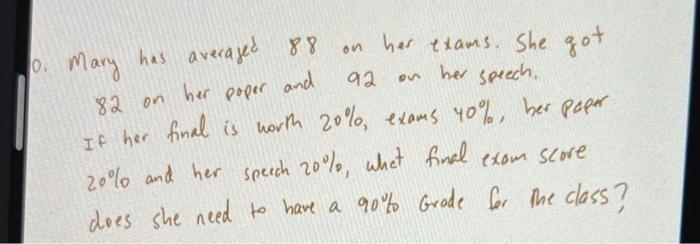 0. Mary has averaged 88 on her exams. She got
82 on her paper and 92 on her speech.
If her final is worth 20%, exams 40%, her paper
20% and her speech 20%, what final exam score
does she need to have a 90% Grade for the class?